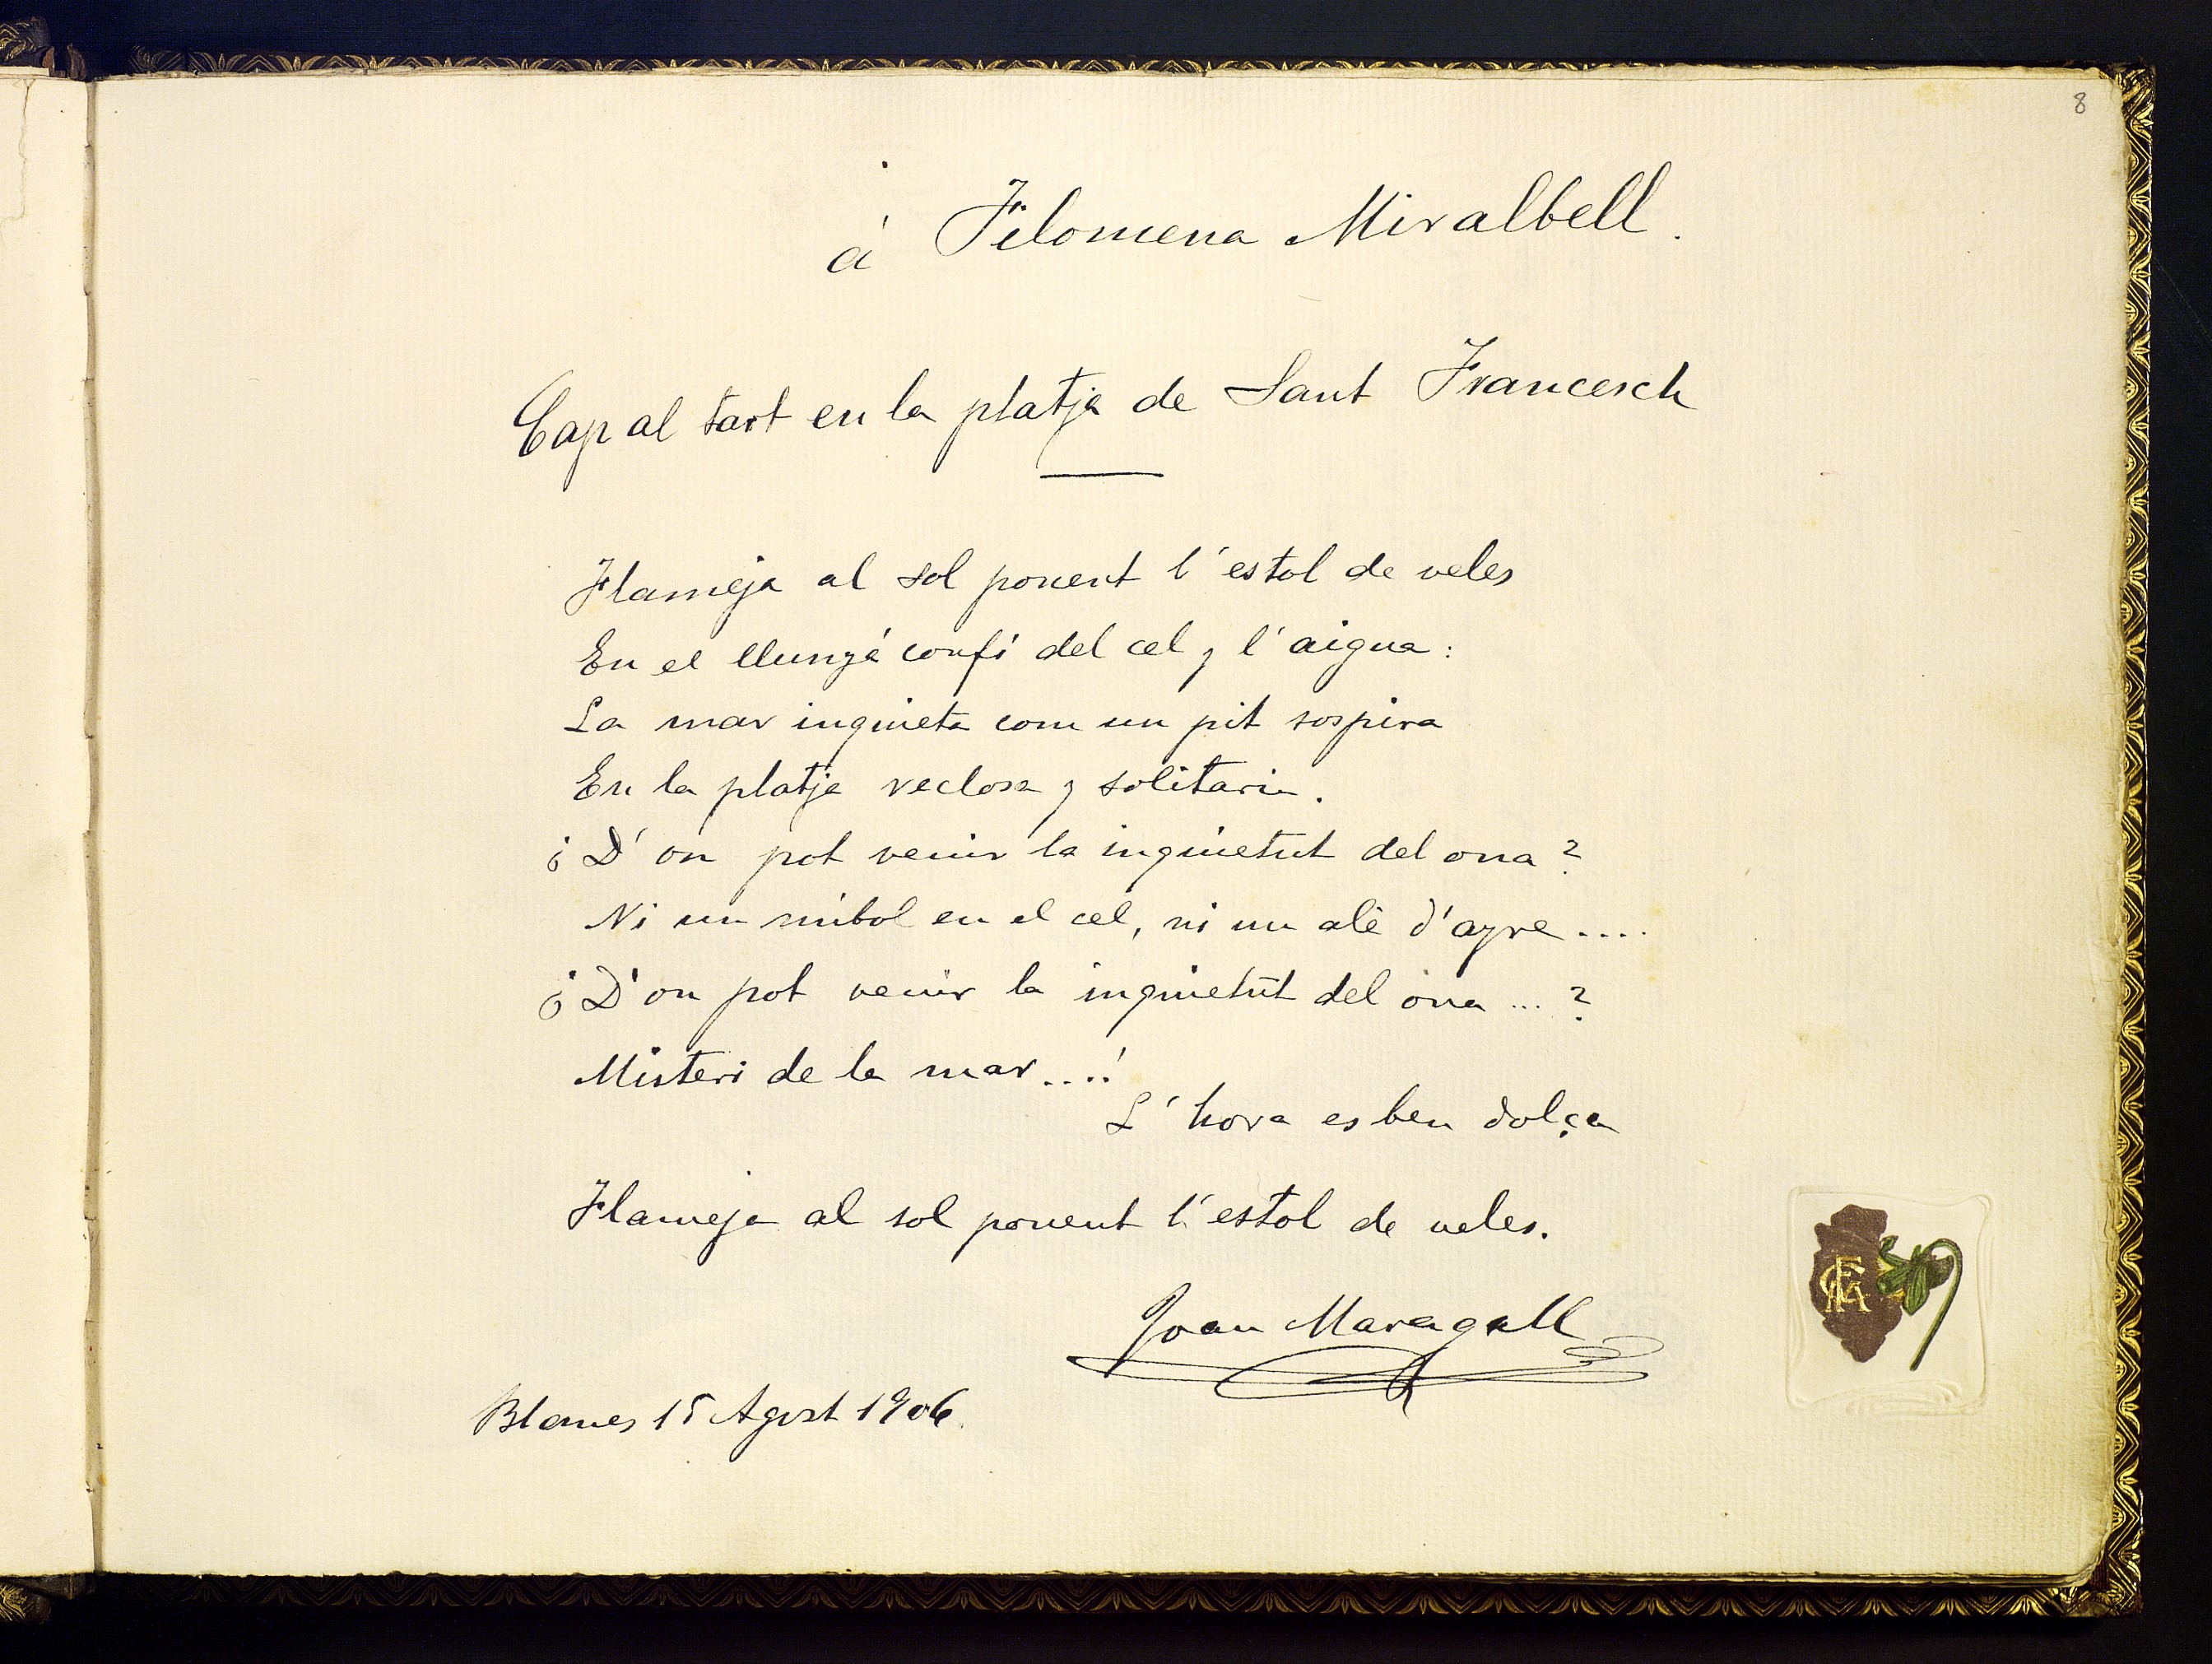 8
á Filomena Miralbell.
Cap al tart en la platja de Sant Francesch
Flameja al sol ponent l'estol de veles
En el llunyá confí del cel y l'aigua:
La mar inquieta com un pit sospira
En la platja reclosa y solitaria.
¿D'on pot venir la inquietut del ona?
Ni un núbol en el cel, ni un alè d'ayre....
¿D'on pot venir la inquietut del ona...?
Misteri de la mar....!
L'hora es ben dolça
Flameja al sol ponent l'estol de veles.
Joan Maragall
Blanes 15 Agost 1906.